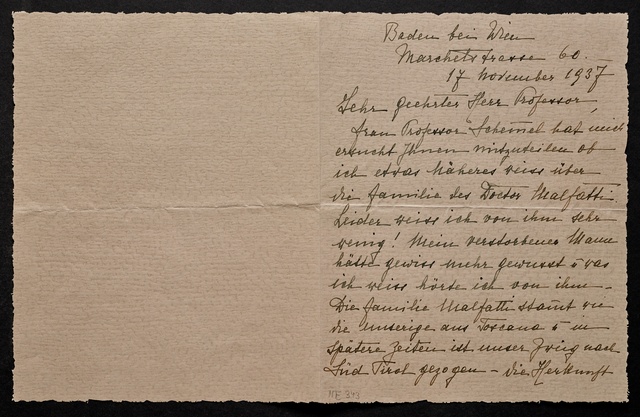 Baden bei Wien
Marchetstrasse 60.
17 November 1937
Sehr geehrter Herr Professor,
Frau Professor Schemel hat mich
ersucht Ihnen mitzuteilen ob
ich etwas Näheres weiss über
die Familie des Doctor Malfatti.
Leider weiss ich von ihm sehr
wenig! Mein verstorbener Mann
hätte gewiss mehr gewusst u was
ich weiss hörte ich von ihm –
Die Familie Malfatti stamt wie
die Unserige aus Toscana u in
spätere Zeiten ist unser Zweig nach
Süd Tirol gezogen – die Herkunft
NE 343